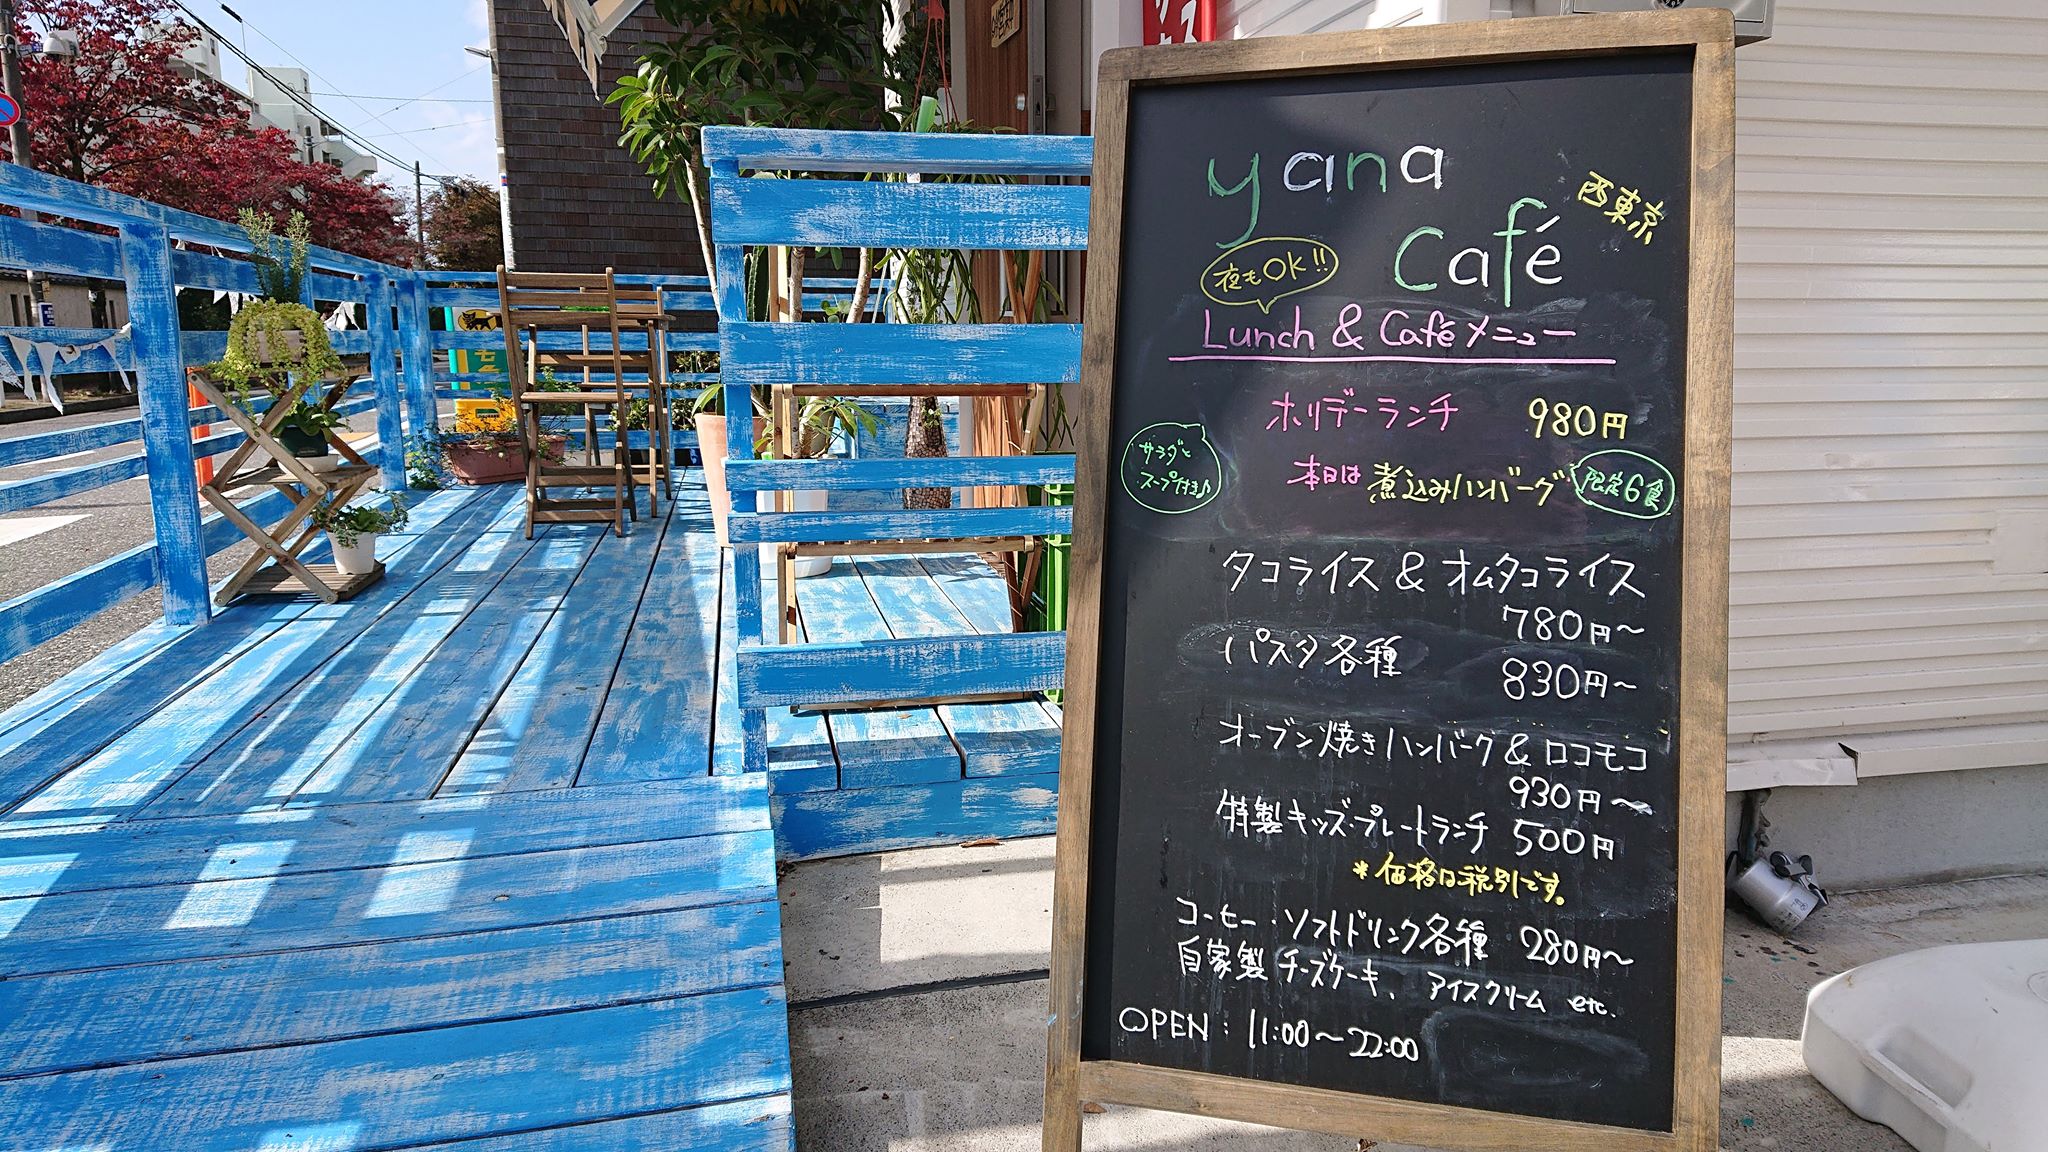 yana
西東京
Café
夜もOK!!
Lunch & Caféメニュー
ホリデーランチ 980円
サラダと
スープ付き♪
本日は 煮込みハンバーグ 限定6食
タコライス & オムタコライス
780円～
パスタ各種 830円～
オーブン焼きハンバーグ & ロコモコ
930円～
特製キッズ・プレートランチ 500円
*価格は税別です。
コーヒー・ソフトドリンク各種 280円～
自家製チーズケーキ、アイスクリーム etc.
OPEN: 11:00～22:00